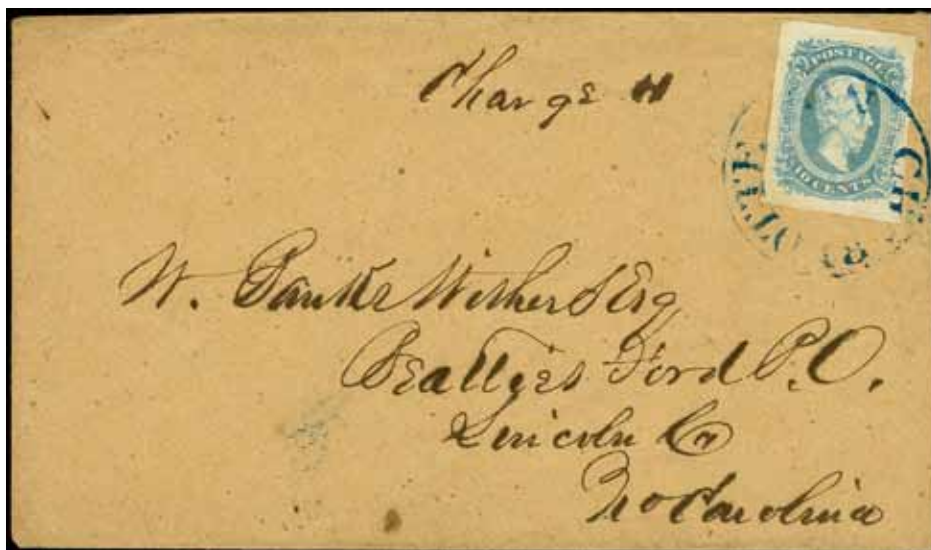 Charge
POSTAGE
10 CENTS
W. Withers Esq
Beatties Ford P.O.
Lincoln Co
No Carolina